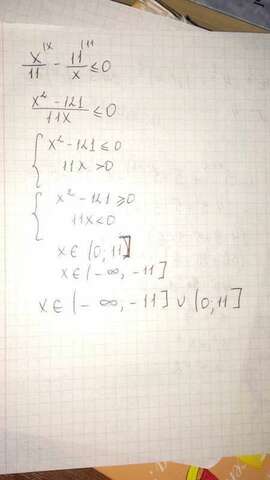 x/11 |x - 11/x |11 ≤ 0
x² - 121 / 11x ≤ 0
{ x² - 121 ≤ 0
11x > 0
{ x² - 121 ≥ 0
11x < 0
x ∈ (0; 11]
x ∈ (-∞, -11]
x ∈ (-∞, -11] ∪ (0; 11]